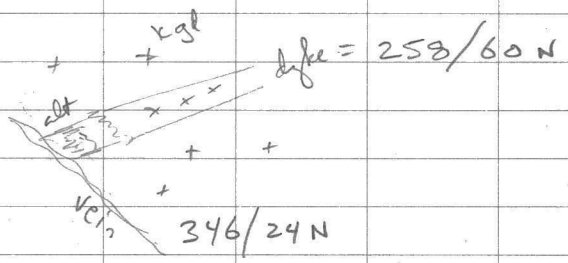 kgd
dyke = 258/60 N
alt
vein
346/24 N